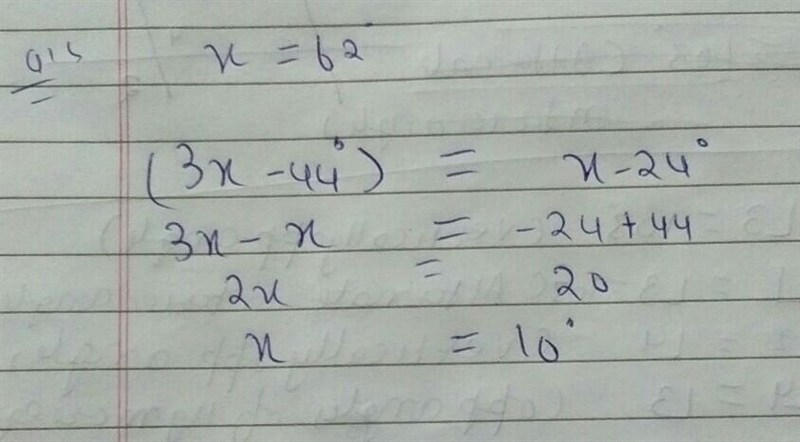 x = 62°
(3x - 44°) = x - 24°
3x - x = -24 + 44
2x = 20
x = 10°